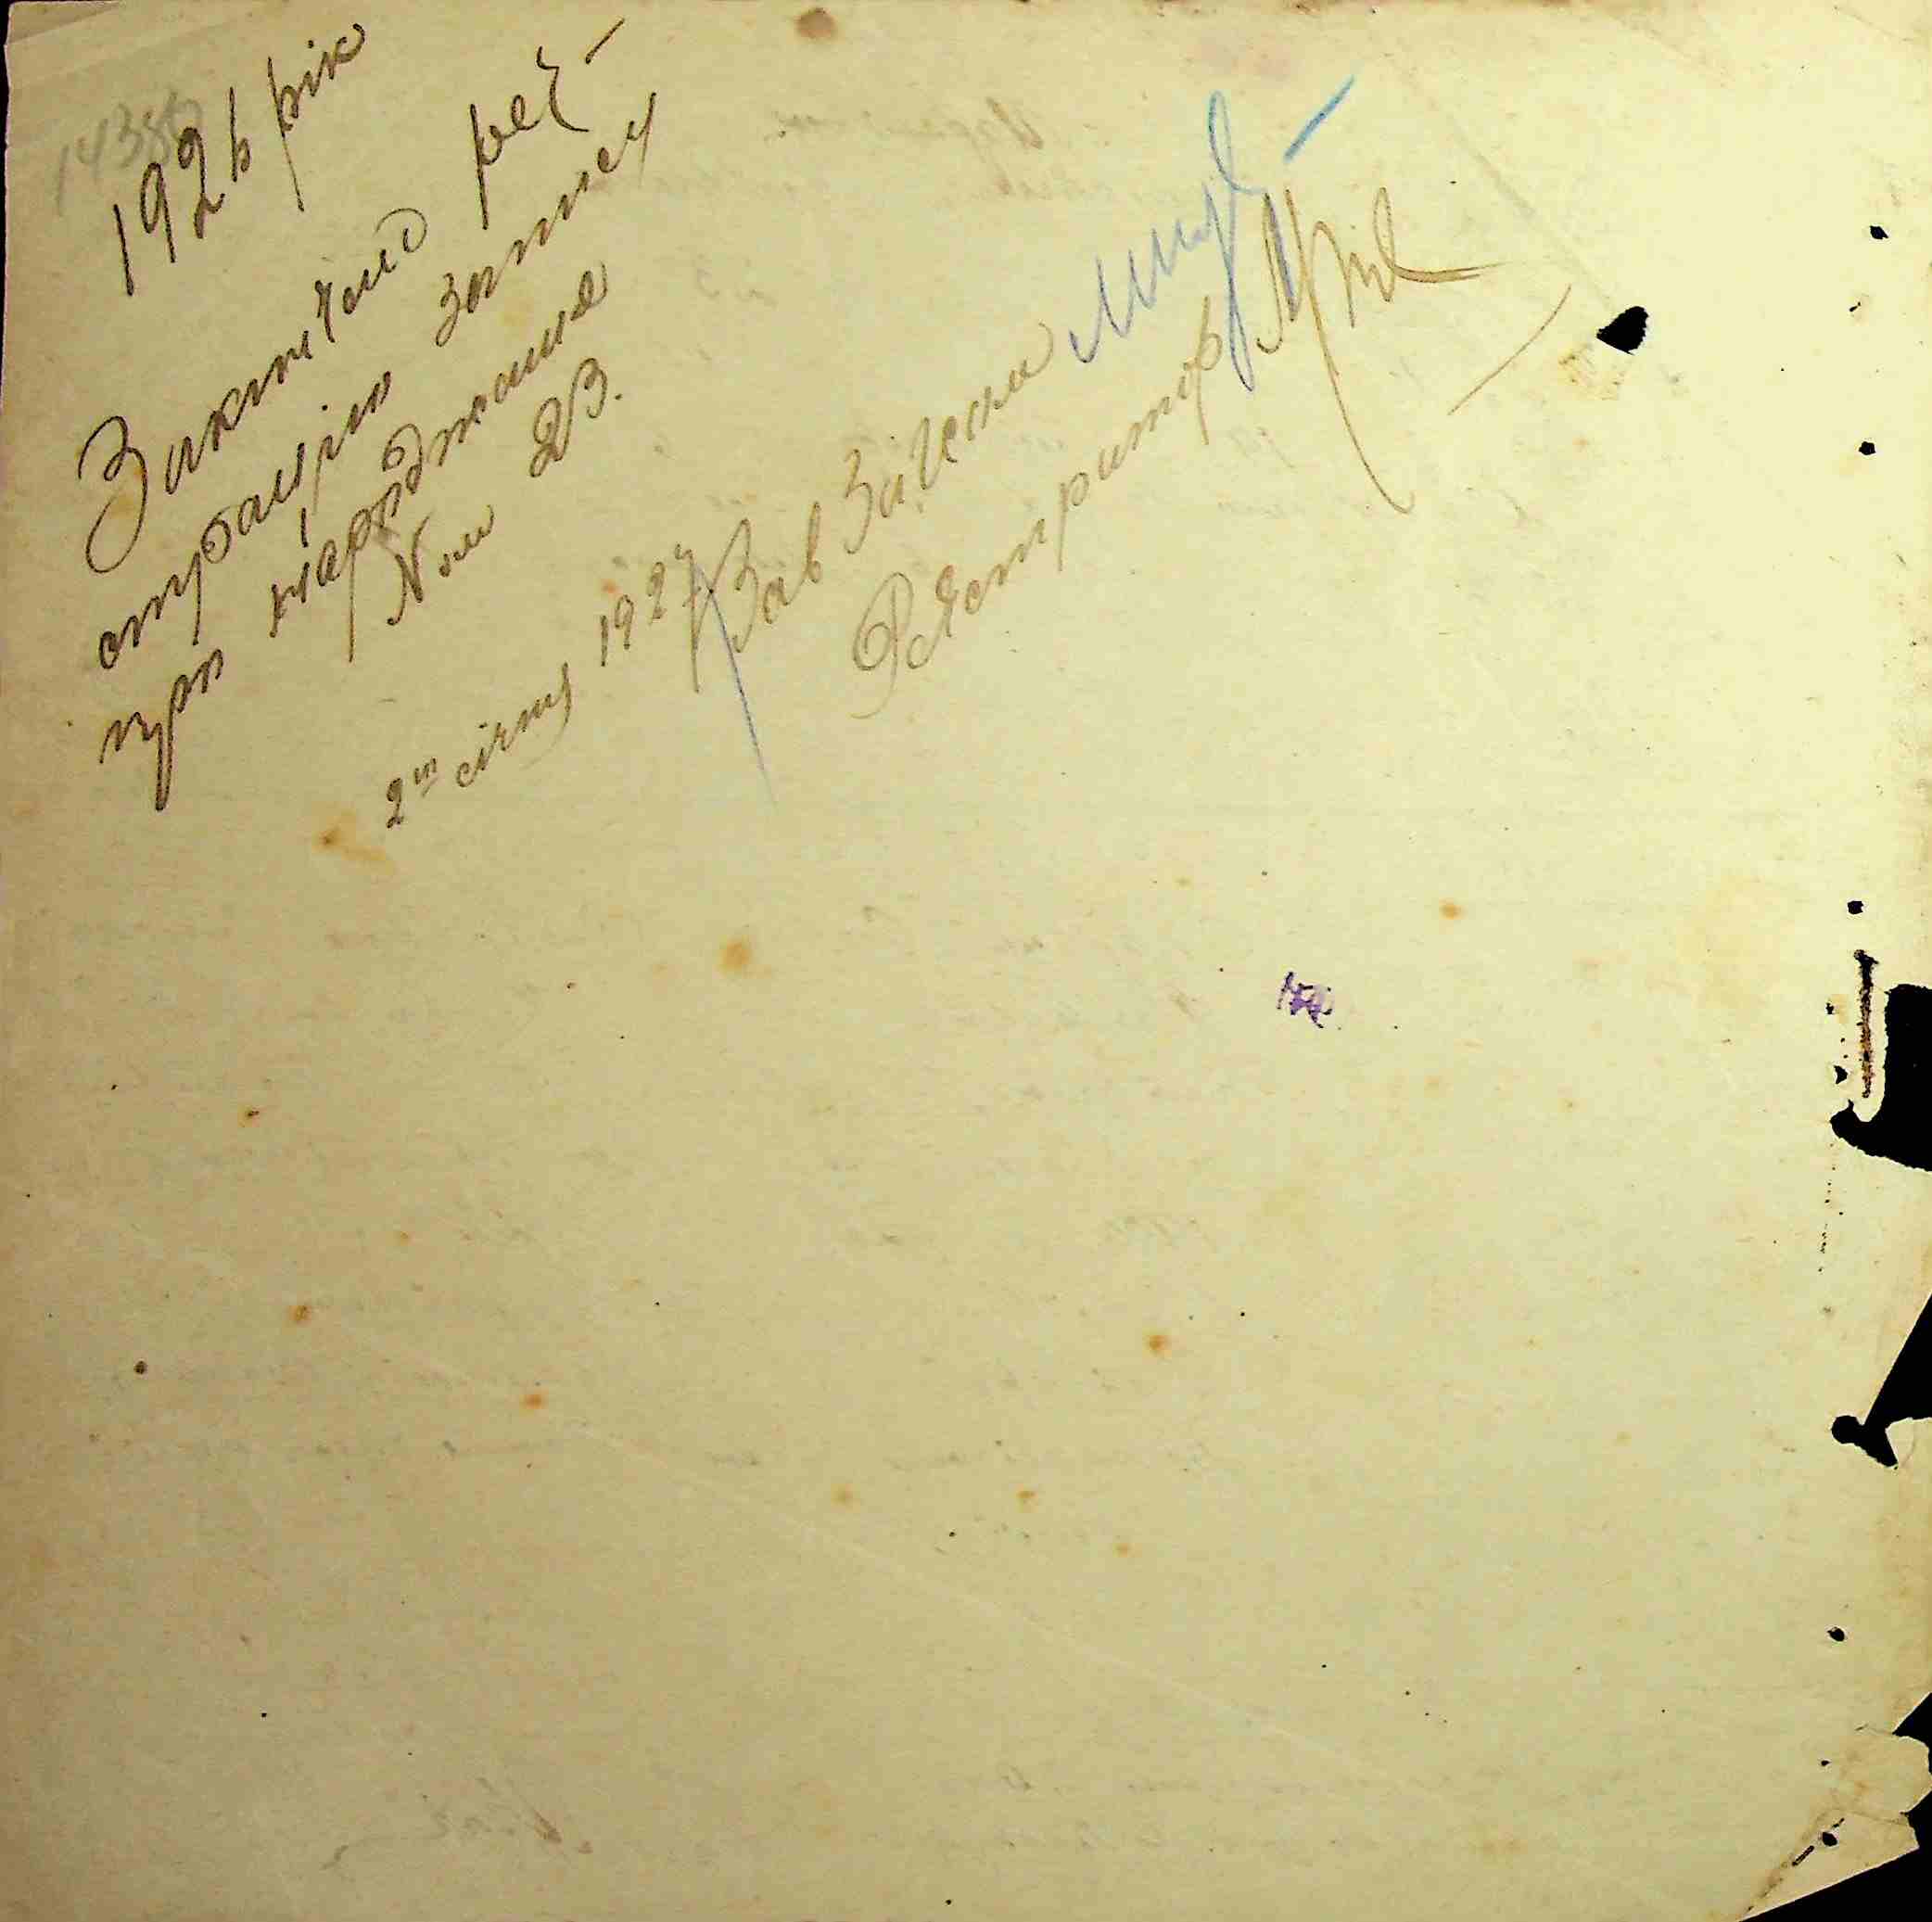 1926 рік
Закінчено реє-
страцію записч
про нарожденне
Nом 23.
2го січня 1927 р Зав Загсом
Реєстратор